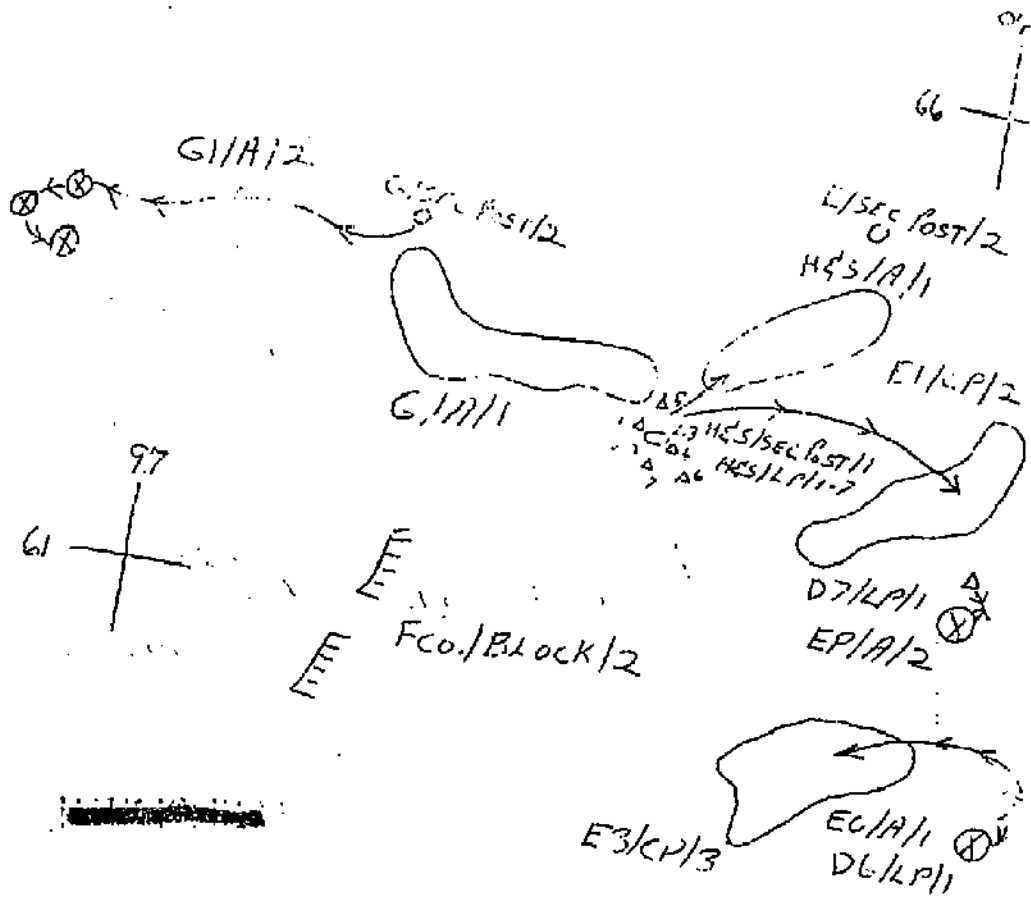 66
G1/A/2
E/SEC POST/2
H&S/A/1
E1/LP/2
G/A/1
H&S/SEC POST/1
H&S/LP/1-7
97
61
D7/LP/1
EP/A/2
FCO./BLOCK/2
E3/CP/3
E6/A/1
D6/LP/1